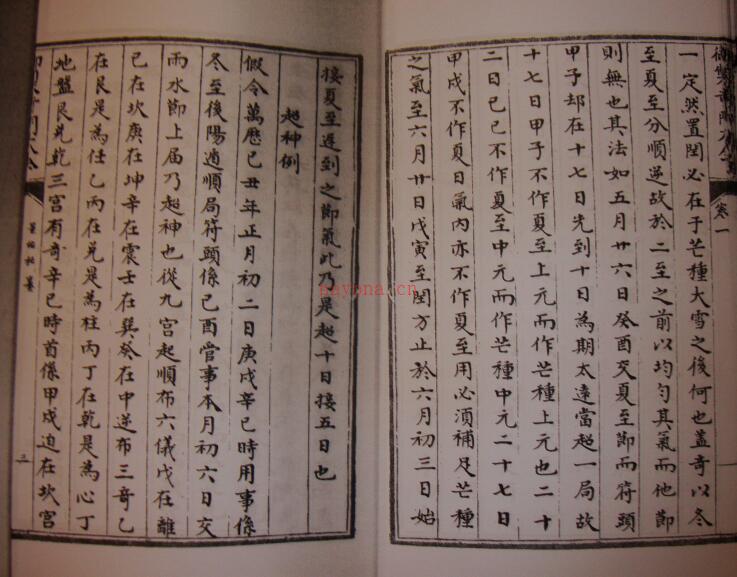 卷一
一定然置閏必在于芒種大雪之後何也蓋奇以冬
至夏至分順逆故於二至之前以均勻其氣而他節
則無也其法如五月廿六日癸酉交夏至節而符頭
甲子却在十七日先到十日為期太遠當超一局故
十七日甲子不作夏至上元而作芒種上元也二十
二日己巳不作夏至中元而作芒種中元二十七日
甲戌不作夏日氣內亦不作夏至用必須補足芒種
之氣至六月廿日戊寅至閏方止於六月初三日始
接夏至遲到之節氣此乃是超十日接五日也
超神例
假令萬歷己丑年正月初二日庚戌辛巳時用事係
冬至後陽遁順局符頭係己酉當事本月初六日交
雨水節上屆乃超神也從九宮起順布六儀戊在離
己在坎庚在坤辛在震壬在巽癸在中逆布三奇乙
在艮是為任乙丙在兌是為柱丙丁在乾是為心丁
地盤艮兌乾三宮有奇辛巳時首係甲戌迫在坎宮
三
nayona.cn